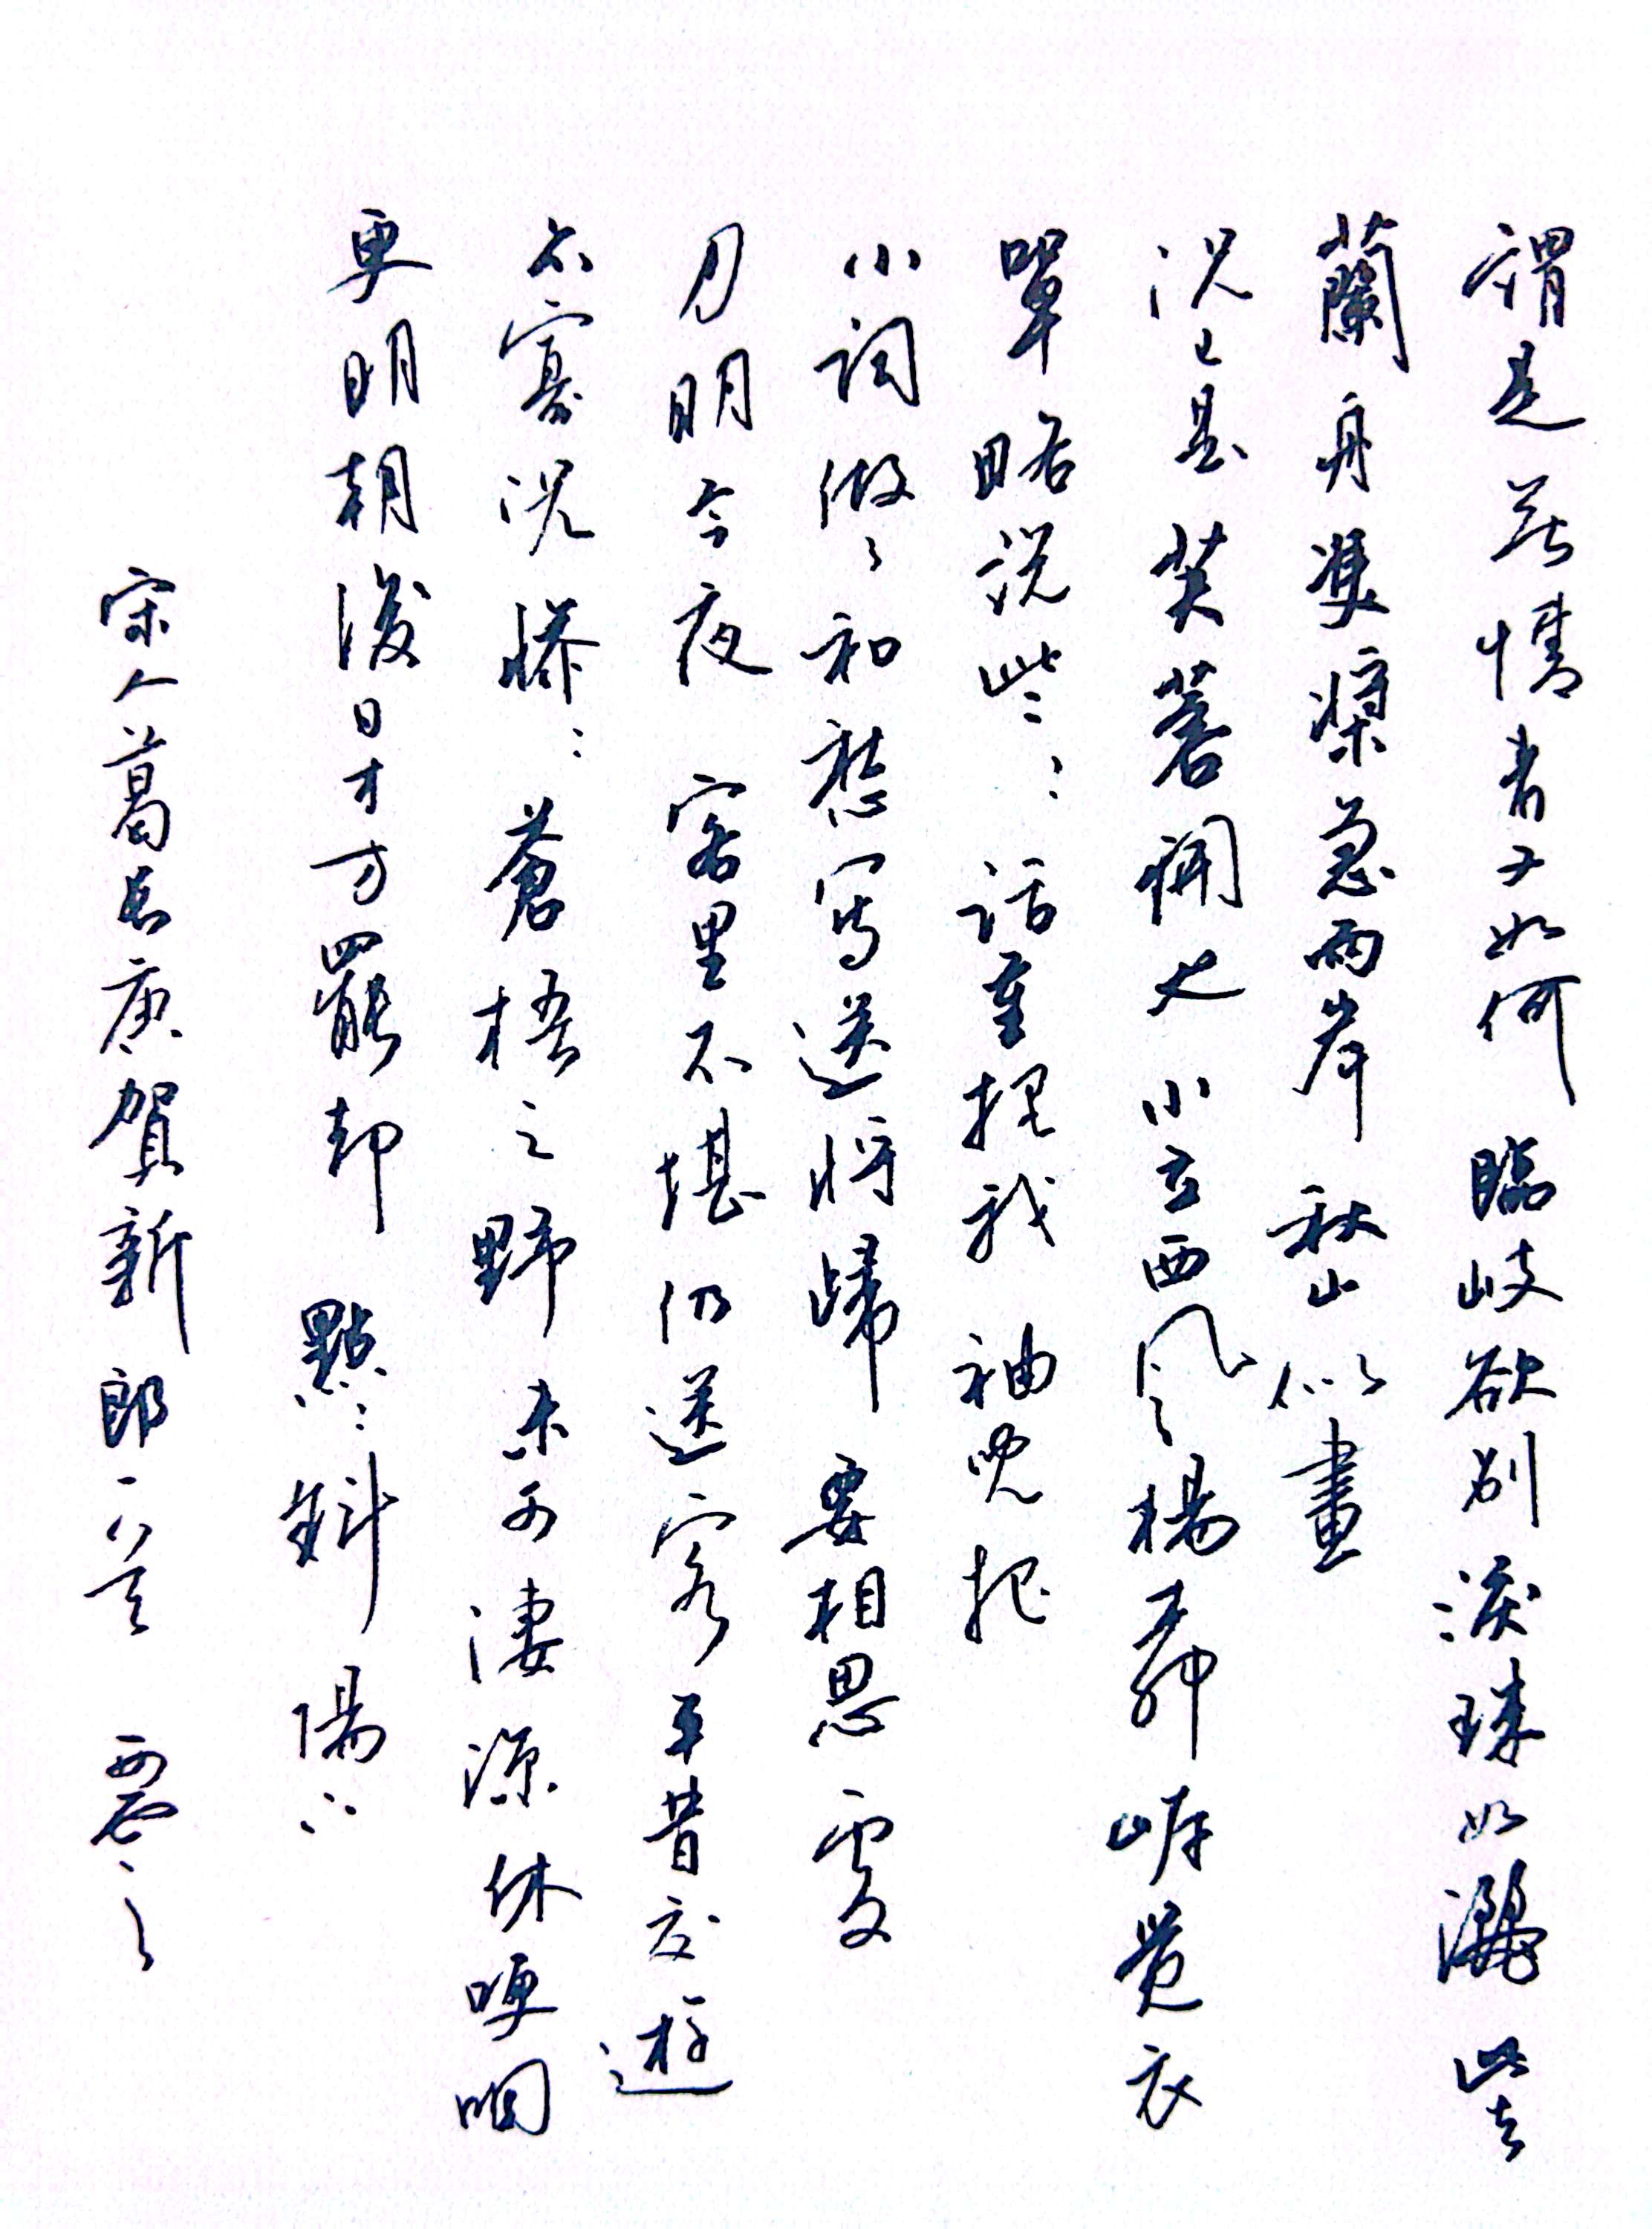 謂是無情者又如何臨岐欲別淚珠如灑此去
蘭舟雙槳急兩岸秋山似畫
況已是芙蓉開也小立西风楊舞岸覺衣
單略説些些話重把我袖兒把
小詞做了和愁寫送將歸要相思處
月明今夜客里不堪仍送客平昔交遊
亦寡況慘慘蒼梧之野未可凄涼休哽咽
更明朝後日才方罷却點點斜陽下
宋人葛長庚賀新郎一首